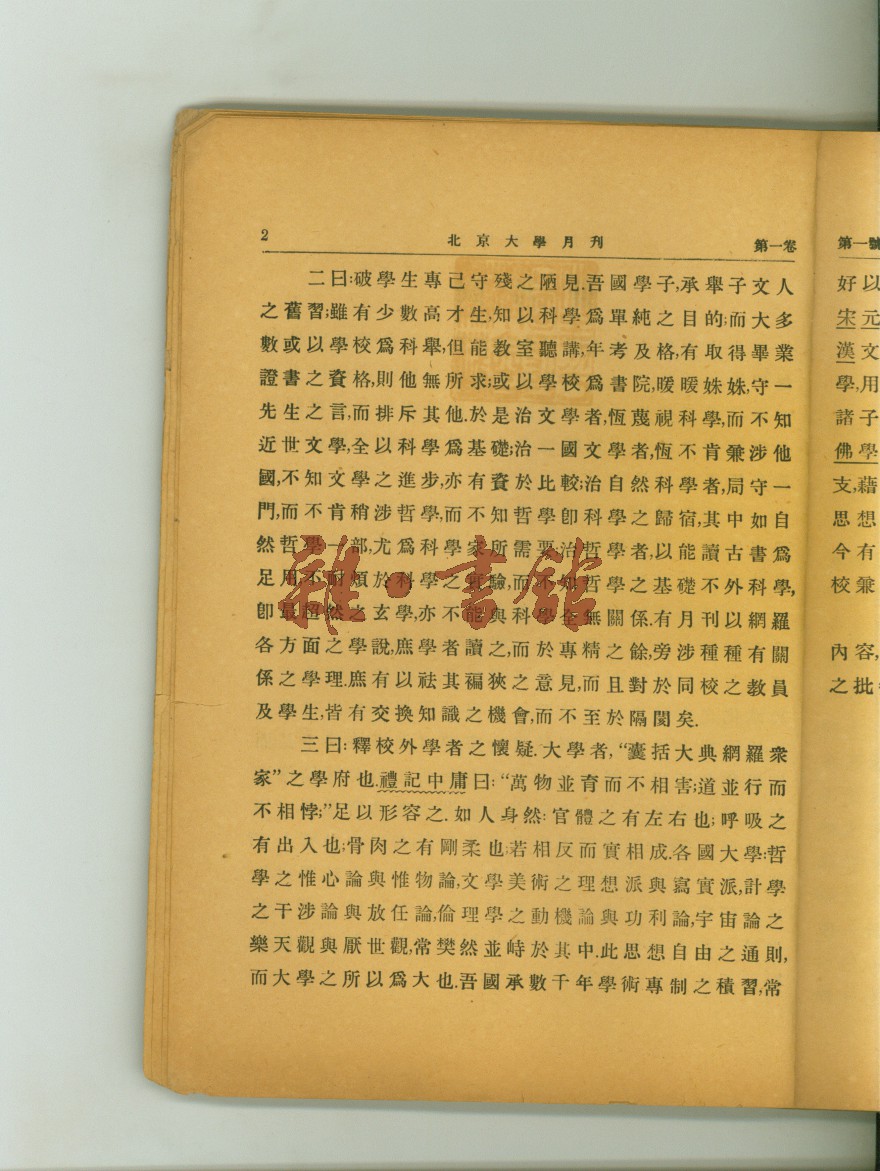 2 北京大學月刊 第一卷
二曰:破學生專己守殘之陋見.吾國學子,承舉子文人
之舊習;雖有少數高才生,知以科學爲單純之目的;而大多
數或以學校爲科舉,但能教室聽講,年考及格,有取得畢業
證書之資格,則他無所求;或以學校爲書院,暖暖姝姝,守一
先生之言,而排斥其他.於是治文學者,恆蔑視科學,而不知
近世文學,全以科學爲基礎;治一國文學者,恆不肯兼涉他
國,不知文學之進步,亦有資於比較;治自然科學者,局守一
門,而不肯稍涉哲學,而不知哲學卽科學之歸宿,其中如自
然哲學一部,尤爲科學家所需要;治哲學者,以能讀古書爲
足用,不耐煩於科學之實驗,而不知哲學之基礎不外科學,
卽最超然之玄學,亦不能與科學全無關係.有月刊以網羅
各方面之學說,庶學者讀之,而於專精之餘,旁涉種種有關
係之學理.庶有以祛其褊狹之意見,而且對於同校之教員
及學生,皆有交換知識之機會,而不至於隔閡矣.
三曰:釋校外學者之懷疑.大學者,“囊括大典網羅衆
家”之學府也.禮記中庸曰:“萬物並育而不相害;道並行而
不相悖;”足以形容之.如人身然:官體之有左右也;呼吸之
有出入也;骨肉之有剛柔也;若相反而實相成.各國大學:哲
學之惟心論與惟物論,文學美術之理想派與寫實派,計學
之干涉論與放任論,倫理學之動機論與功利論,宇宙論之
樂天觀與厭世觀,常樊然並峙於其中.此思想自由之通則,
而大學之所以爲大也.吾國承數千年學術專制之積習,常
第一號
好以
宋元
漢文
學,用
諸子
佛學
支,藉
思想
今有
校兼
內容,
之批
雜·書館